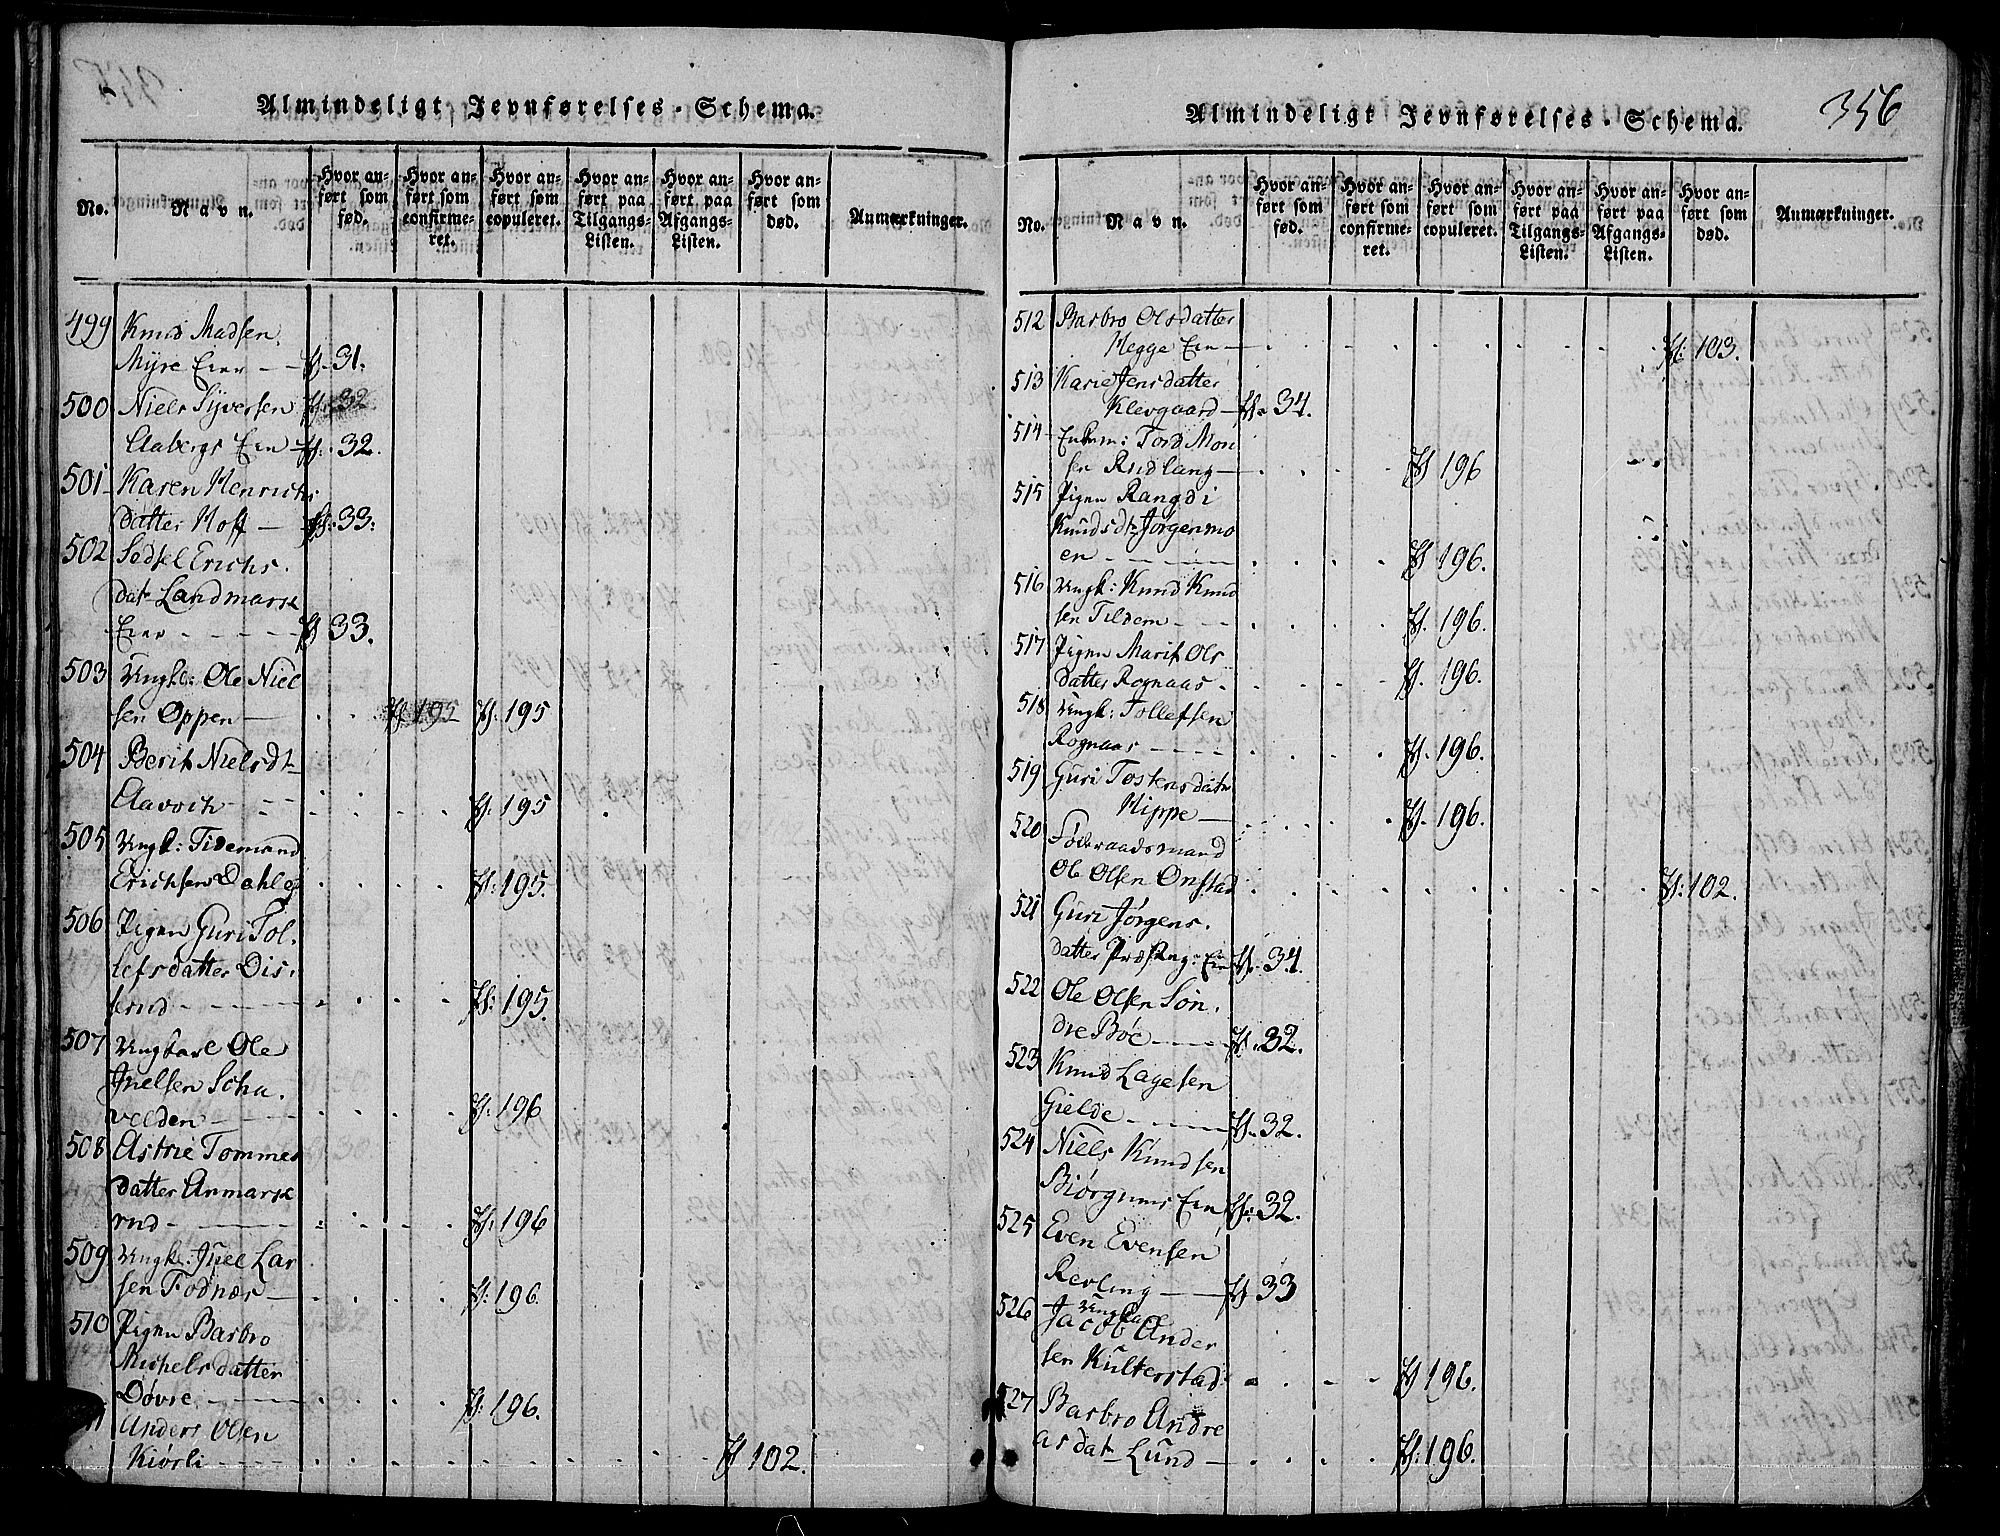 Almindeligt Jevnførelses-Schema.
No.
Navn.
Hvor anført som fød.
Hvor anført som confirmeret.
Hvor anført som copuleret.
Hvor anført paa Tilgangs-Listen.
Hvor anført paa Afgangs-Listen.
Hvor anført som død.
Anmærkninger.
499 Knud Madsen
Myre Eier - - 31.
500 Niels Syversen 32
Aabergs Eie - 32.
501 Karen Henrichs
datter Hoff - 33.
502 Sedsel Erichs
dat Landmark
Eier - - - - 33.
503 Ungk: Ole Niel
sen Oppen - 195 195
504 Berit Nielsdt
Aavoich - - 195
505 Ungk: Tidemand
Erichsen Dahle 195.
506 Pigen Guri Tol
lefsdatter Dis
erud - - - 195.
507 Ungkarl Ole
Juelsen Scha
velden - - - 196
508 Astrie Tommes
datter Anmark
rud - - - 196
509 Ungk: Juel Lar
sen Fodnæs - 196.
510 Pigen Barbro
Michelsdatter
Døvre - - - 196.
Anders Olsen
Kiørli - - - 102.
356
Almindeligt Jevnførelses-Schema.
No.
Navn.
Hvor anført som fød.
Hvor anført som confirmeret.
Hvor anført som copuleret.
Hvor anført paa Tilgangs-Listen.
Hvor anført paa Afgangs-Listen.
Hvor anført som død.
Anmærkninger.
512 Barbro Olsdatter
Hegge Eie - 103.
513 Karie Jensdatter
Klevgaard - 34.
514 Enkem: Tord Mon
sen Rudlang - 196
515 Pigen Rangdi
Knudsdt Jørgenmo
en - - - 196.
516 Ungk: Knud Knud
sen Tildem - - 196.
517 Pigen Marit Ols
datter Rognaas - 196.
518 Ungk: Tollefsen
Rognaas - - - 196.
519 Guri Tostensdatr
Hippe - 196.
520 Føderaadsmand
Ole Olsen Onstad 102.
521 Guri Jørgens
datter Præsteng: Eie 34.
522 Ole Olsen Søn
dre Bøe - - - 32.
523 Knud Lagesen
Gielde - - - 32.
524 Niels Knudsen
Biørgums Eie 32.
525 Even Evensen
Revling - - 33
526 Ungkarl
Jacob Ander
sen Kulterstad 196.
527 Barbro Andre
as dat Lund - 196.